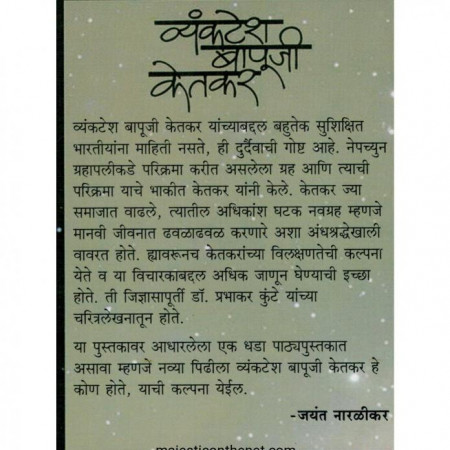 व्यंकटेश
बापूजी
केतकर
व्यंकटेश बापूजी केतकर यांच्याबद्दल बहुतेक सुशिक्षित
भारतीयांना माहिती नसते, ही दुर्दैवाची गोष्ट आहे. नेपच्युन
ग्रहापलीकडे परिक्रमा करीत असलेला ग्रह आणि त्याची
परिक्रमा याचे भाकीत केतकर यांनी केले. केतकर ज्या
समाजात वाढले, त्यातील अधिकांश घटक नवग्रह म्हणजे
मानवी जीवनात ढवळाढवळ करणारे अशा अंधश्रद्धेखाली
वावरत होते. ह्यावरूनच केतकरांच्या विलक्षणतेची कल्पना
येते व या विचारकाबद्दल अधिक जाणून घेण्याची इच्छा
होते. ती जिज्ञासापूर्ती डॉ. प्रभाकर कुंटे यांच्या
चरित्रलेखनातून होते.
या पुस्तकावर आधारलेला एक धडा पाठ्यपुस्तकात
असावा म्हणजे नव्या पिढीला व्यंकटेश बापूजी केतकर हे
कोण होते, याची कल्पना येईल.
-जयंत नारळीकर
majesticonthenet.com